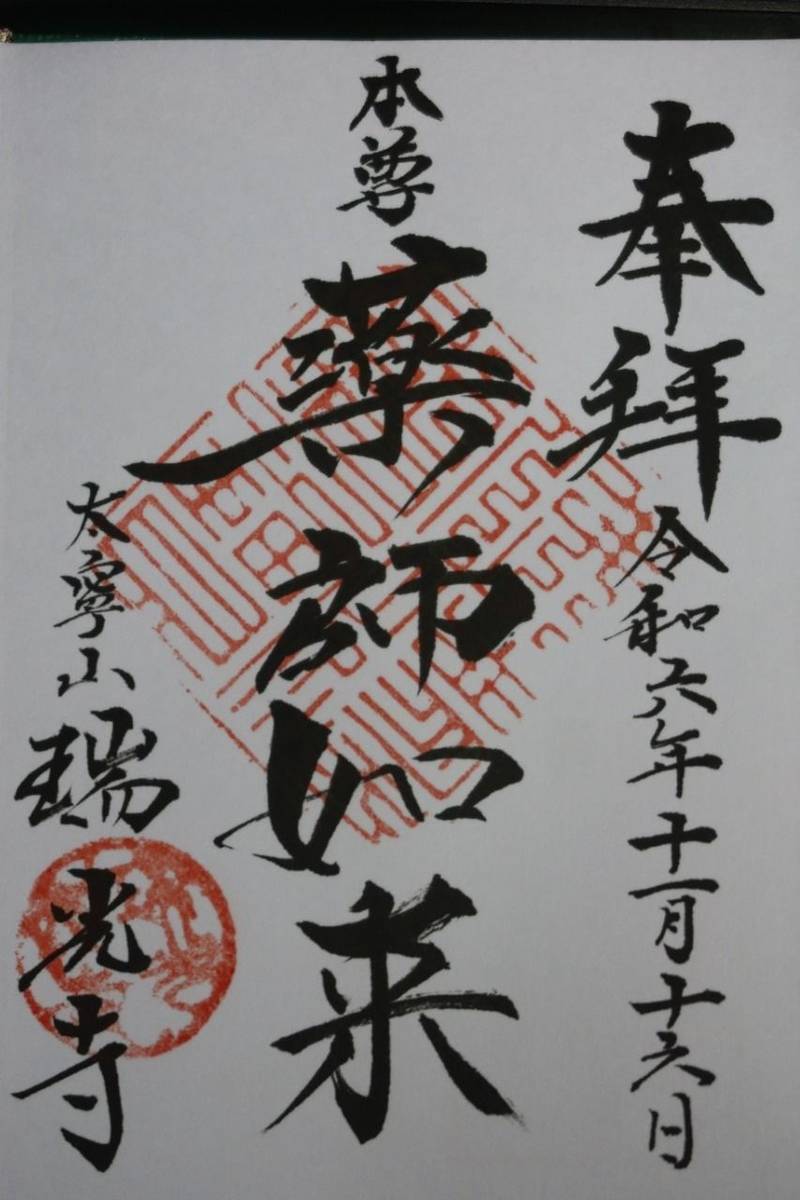 奉拝
令和六年十一月十六日
本尊
薬師如来
太寧山
瑞光寺